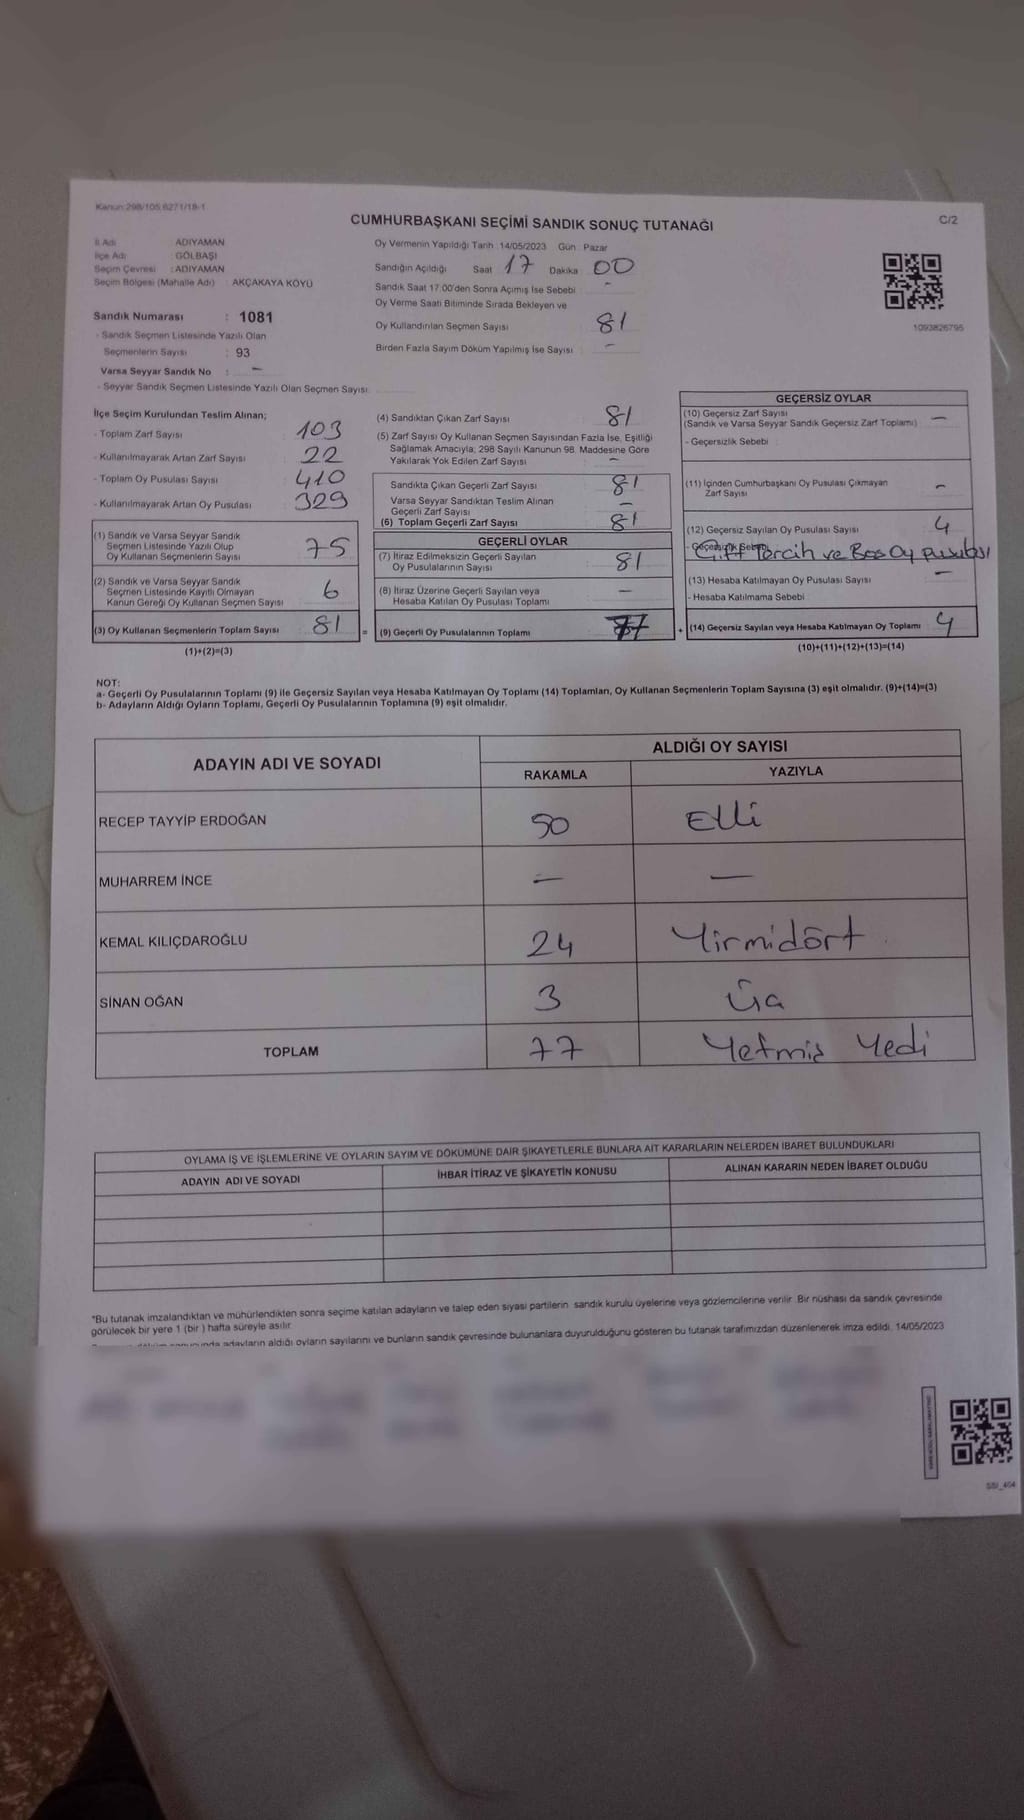 Kanun:298/105,6271/18-1
C/2
CUMHURBAŞKANI SEÇİMİ SANDIK SONUÇ TUTANAĞI
İl Adı : ADIYAMAN
İlçe Adı : GÖLBAŞI
Seçim Çevresi : ADIYAMAN
Seçim Bölgesi (Mahalle Adı) : AKÇAKAYA KÖYÜ
Sandık Numarası : 1081
- Sandık Seçmen Listesinde Yazılı Olan
Seçmenlerin Sayısı : 93
Varsa Seyyar Sandık No : -
- Seyyar Sandık Seçmen Listesinde Yazılı Olan Seçmen Sayısı:
Oy Vermenin Yapıldığı Tarih :14/05/2023 Gün : Pazar
Sandığın Açıldığı Saat 17 Dakika 00
Sandık Saat 17:00'den Sonra Açımış İse Sebebi : -
Oy Verme Saati Bitiminde Sırada Bekleyen ve
Oy Kullandırılan Seçmen Sayısı : 81
Birden Fazla Sayım Döküm Yapılmış İse Sayısı : -
1093826795
İlçe Seçim Kurulundan Teslim Alınan;
- Toplam Zarf Sayısı : 103
- Kullanılmayarak Artan Zarf Sayısı : 22
- Toplam Oy Pusulası Sayısı : 410
- Kullanılmayarak Artan Oy Pusulası : 329
(1) Sandık ve Varsa Seyyar Sandık
Seçmen Listesinde Yazılı Olup
Oy Kullanan Seçmenlerin Sayısı : 75
(2) Sandık ve Varsa Seyyar Sandık
Seçmen Listesinde Kayıtlı Olmayan
Kanun Gereği Oy Kullanan Seçmen Sayısı : 6
(3) Oy Kullanan Seçmenlerin Toplam Sayısı : 81
(1)+(2)=(3)
(4) Sandıktan Çıkan Zarf Sayısı : 81
(5) Zarf Sayısı Oy Kullanan Seçmen Sayısından Fazla İse, Eşitliği
Sağlamak Amacıyla; 298 Sayılı Kanunun 98. Maddesine Göre
Yakılarak Yok Edilen Zarf Sayısı : -
Sandıkta Çıkan Geçerli Zarf Sayısı : 81
Varsa Seyyar Sandıktan Teslim Alınan
Geçerli Zarf Sayısı : -
(6) Toplam Geçerli Zarf Sayısı : 81
GEÇERLİ OYLAR
(7) İtiraz Edilmeksizin Geçerli Sayılan
Oy Pusulalarının Sayısı : 81
(8) İtiraz Üzerine Geçerli Sayılan veya
Hesaba Katılan Oy Pusulası Toplamı : -
= (9) Geçerli Oy Pusulalarının Toplamı : 77
GEÇERSİZ OYLAR
(10) Geçersiz Zarf Sayısı : -
(Sandık ve Varsa Seyyar Sandık Geçersiz Zarf Toplamı)
- Geçersizlik Sebebi :
(11) İçinden Cumhurbaşkanı Oy Pusulası Çıkmayan
Zarf Sayısı : -
(12) Geçersiz Sayılan Oy Pusulası Sayısı : 4
- Geçersizlik Sebebi Çift Tercih ve Boş Oy pusulası
(13) Hesaba Katılmayan Oy Pusulası Sayısı : -
- Hesaba Katılmama Sebebi :
+ (14) Geçersiz Sayılan veya Hesaba Katılmayan Oy Toplamı : 4
(10)+(11)+(12)+(13)=(14)
NOT:
a- Geçerli Oy Pusulalarının Toplamı (9) ile Geçersiz Sayılan veya Hesaba Katılmayan Oy Toplamı (14) Toplamları, Oy Kullanan Seçmenlerin Toplam Sayısına (3) eşit olmalıdır. (9)+(14)=(3)
b- Adayların Aldığı Oyların Toplamı, Geçerli Oy Pusulalarının Toplamına (9) eşit olmalıdır.
ADAYIN ADI VE SOYADI ALDIĞI OY SAYISI
RAKAMLA YAZIYLA
RECEP TAYYİP ERDOĞAN 50 Elli
MUHARREM İNCE - -
KEMAL KILIÇDAROĞLU 24 Yirmidört
SİNAN OĞAN 3 Üç
TOPLAM 77 Yetmiş Yedi
OYLAMA İŞ VE İŞLEMLERİNE VE OYLARIN SAYIM VE DÖKÜMÜNE DAİR ŞİKAYETLERLE BUNLARA AİT KARARLARIN NELERDEN İBARET BULUNDUKLARI
ADAYIN ADI VE SOYADI İHBAR İTİRAZ VE ŞİKAYETİN KONUSU ALINAN KARARIN NEDEN İBARET OLDUĞU
*Bu tutanak imzalandıktan ve mühürlendikten sonra seçime katılan adayların ve talep eden siyasi partilerin sandık kurulu üyelerine veya gözlemcilerine verilir. Bir nüshası da sandık çevresinde
görülecek bir yere 1 (bir ) hafta süreyle asılır.
adayların aldığı oyların sayılarını ve bunların sandık çevresinde bulunanlara duyurulduğunu gösteren bu tutanak tarafımızdan düzenlenerek imza edildi. 14/05/2023